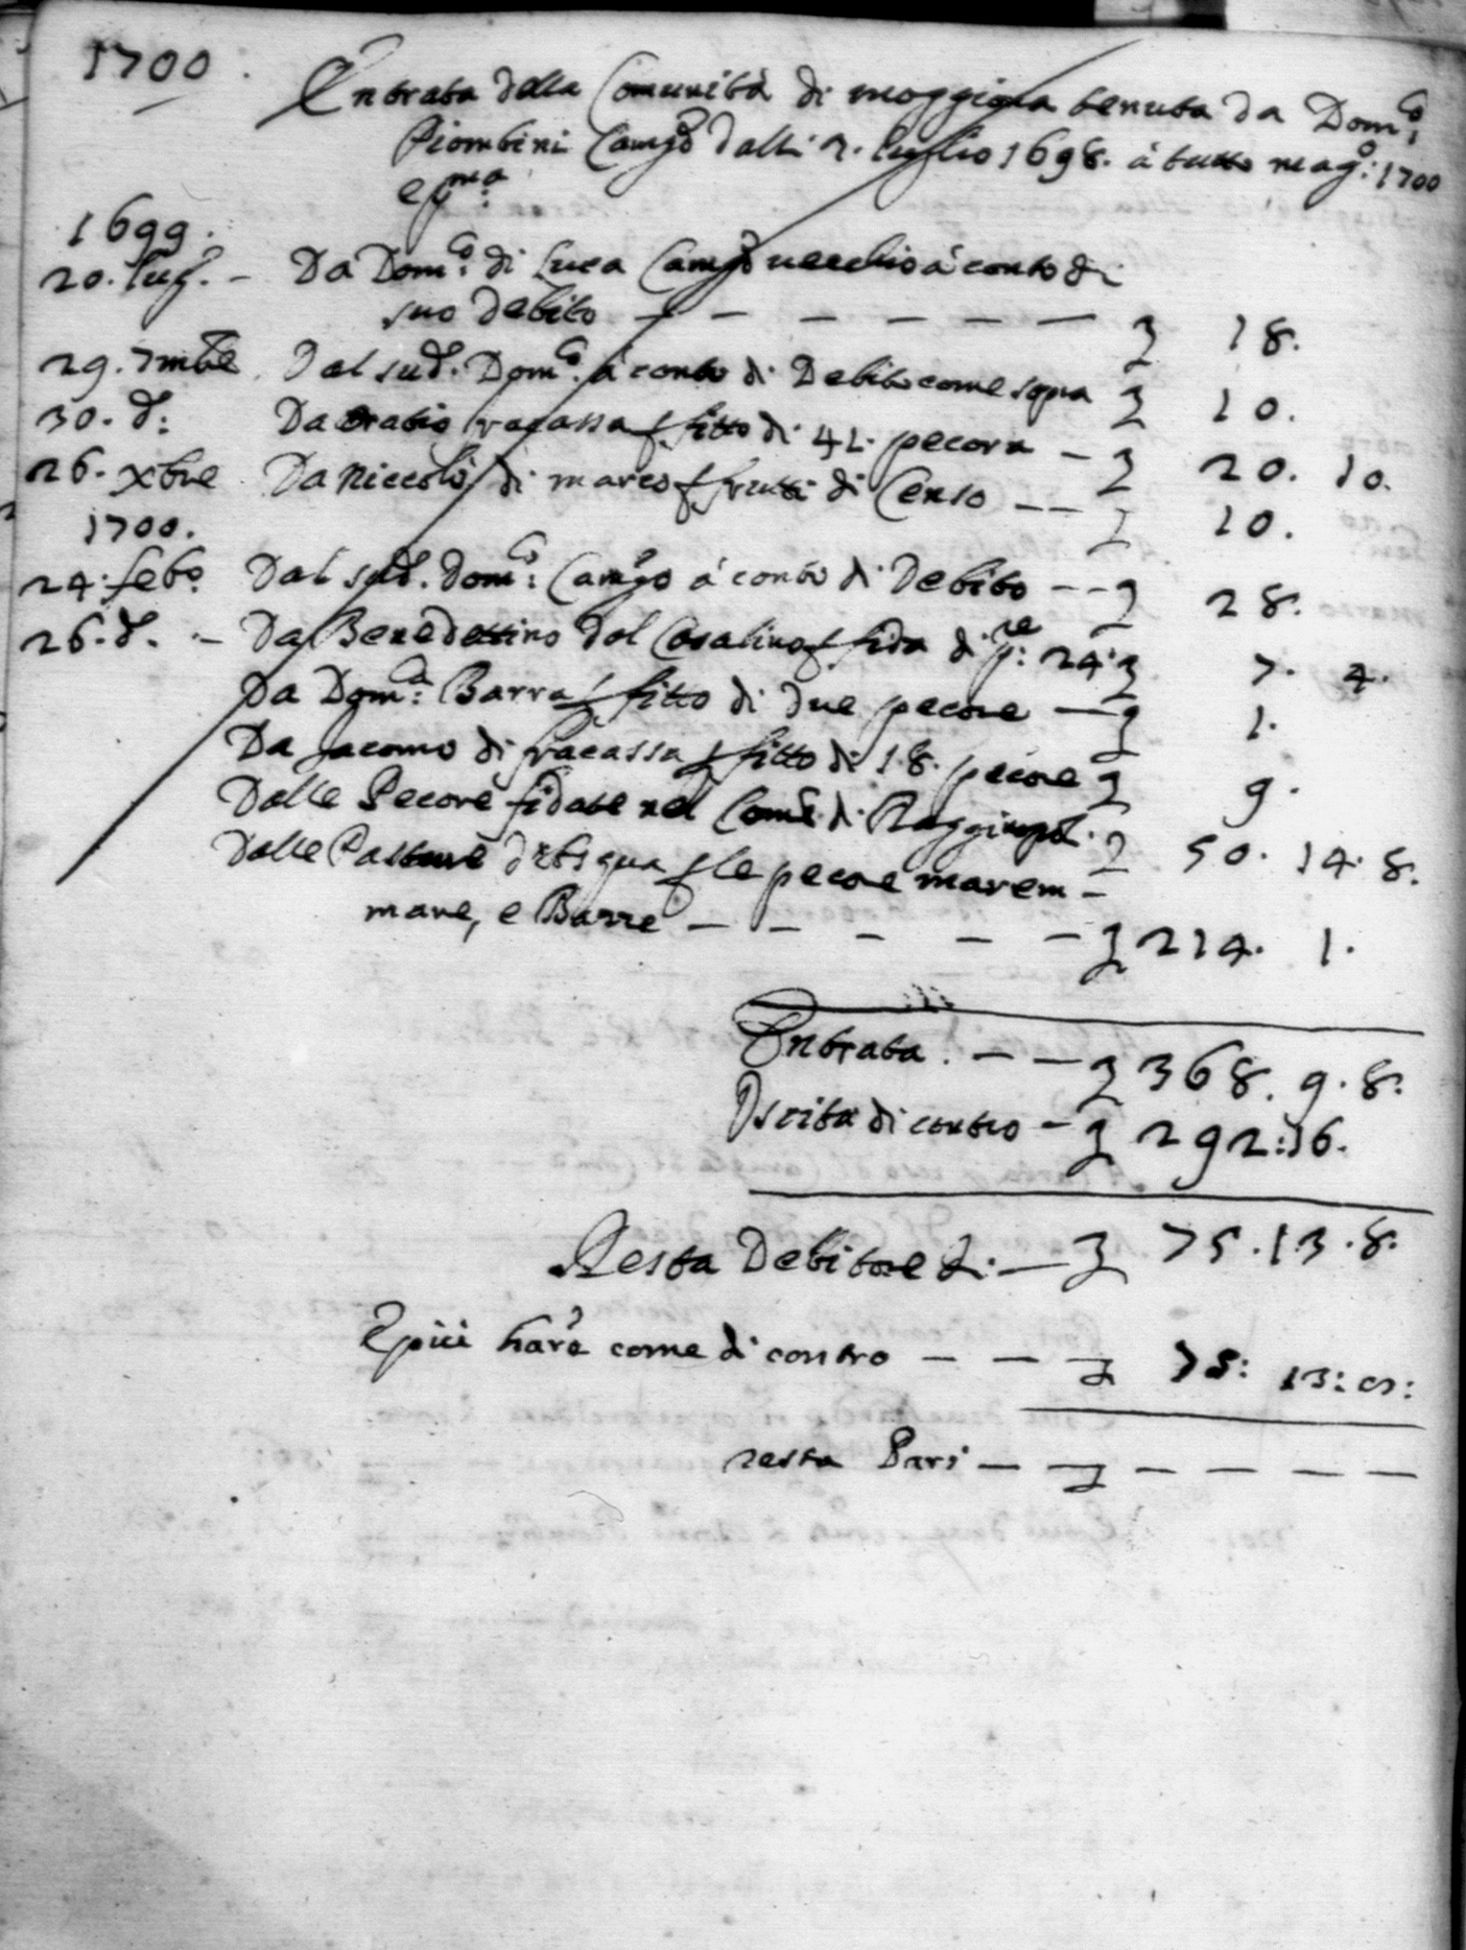 1700.
Entrata della Comunità di moggiona tenuta da Dom.co
Piombini Camgo dalli 2. luglio 1698. à tutto mag.o: 1700
e p.ma
1699.
20. lug. - Da Dom.co di Luca Camgo vecchio à conto di
suo debito - - - - - - £ 18.
29. 7mbre Dal sud. Dom.co à conto di Debito come sopra £ 10.
30. d: Da Oratio fracassa p fitto di 41. pecora - £ 20. 10.
26. Xbre Da Niccolò di marco p frutti di Censo - - £ 10.
1700.
24. febo. Dal sud. Dom.co Camgo à conto di Debito - - £ 28.
26. d. - Da Benedettino dal Casalino p fida di p.re 24. £ 7. 4.
Da Dom.co Barra p fitto di due pecore - £ 1.
Da Jacomo di fracassa p fitto di 18. pecore £ 9.
Dalle Pecore fidate nel Come di Raggiuopoli. £ 50. 14. 8.
Dalle Pasture p le pecore marem-
mane, e Barre - - - - - £ 214. 1.
Entrata. - - £ 368. 9. 8.
Uscita di contro - £ 292: 16.
Resta Debitore di - £ 75. 13. 8.
E più harà come di contro - - £ 75: 13: 8:
resta Pari - £ - - - -